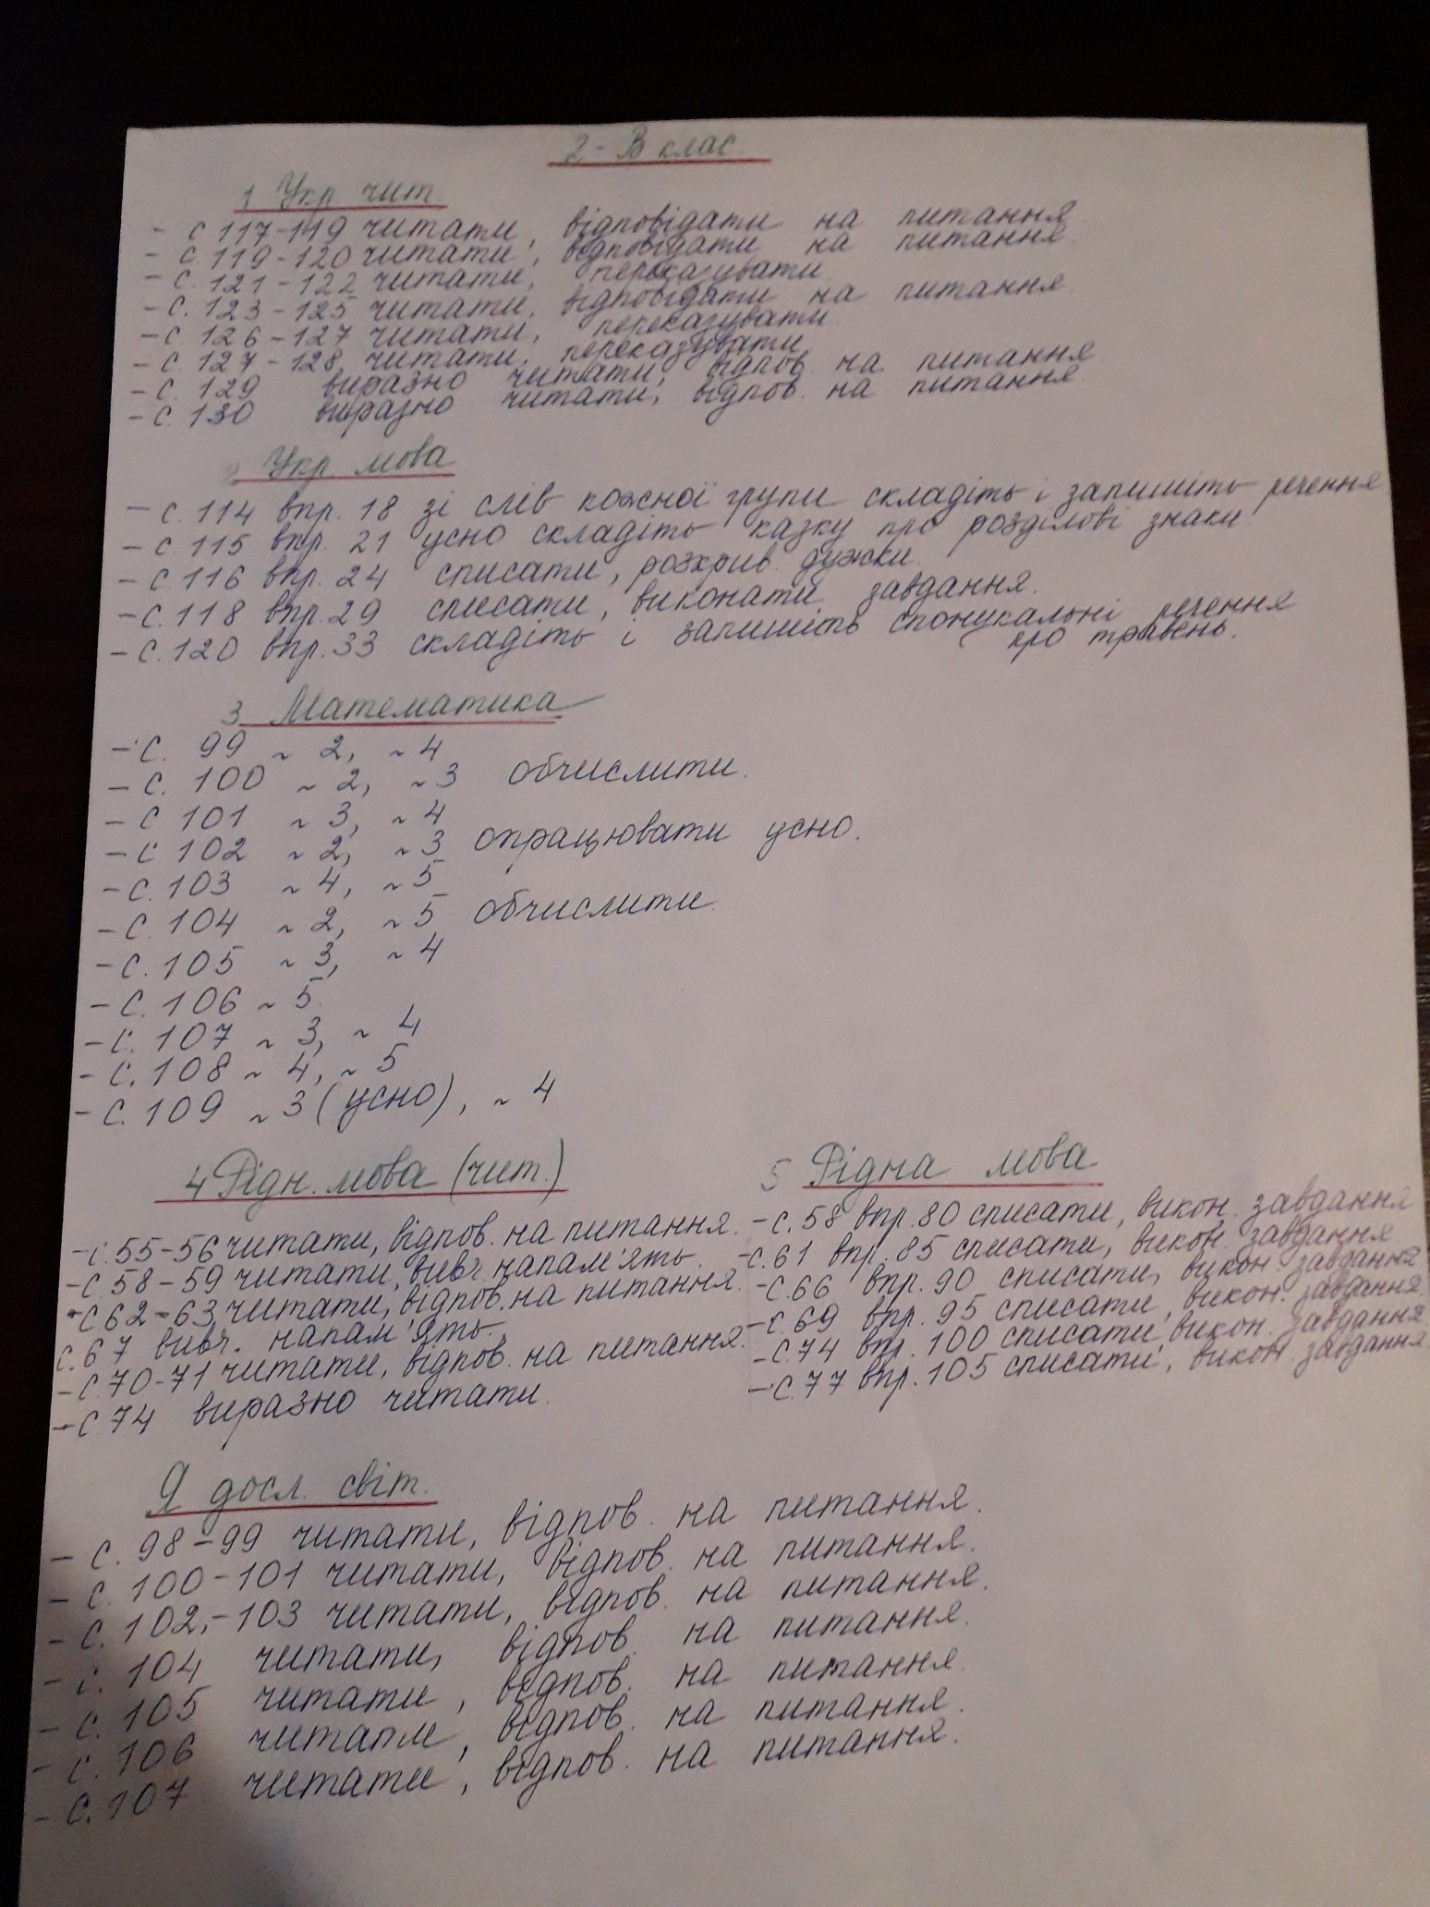 2-В клас
1 Укр. чит.
- с 117-119 читати, відповідати на питання.
- с. 119-120 читати, відповідати на питання.
- с. 121-122 читати, переказувати.
- с. 123-125 читати, відповідати на питання.
- с 126-127 читати, переказувати
- с. 127-128 читати, переказувати
- с. 129 виразно читати, відпов. на питання
- с. 130 виразно читати, відпов. на питання.
Укр. мова
- с. 114 впр. 18 зі слів кожної групи складіть і запишіть речення
- с. 115 впр. 21 усно складіть казку про розділові знаки.
- с 116 впр. 24 списати, розкрив. дужки.
- с. 118 впр. 29 списати, виконати завдання.
- с. 120 впр. 33 складіть і запишіть спонукальні речення
про травень.
3 Математика
- с. 99 ~ 2, ~ 4
- с. 100 ~ 2, ~ 3 обчислити.
- с 101 ~ 3, ~ 4
- с 102 ~ 2, ~ 3 опрацювати усно.
- с. 103 ~ 4, ~ 5
- с. 104 ~ 2, ~ 5 обчислити.
- с. 105 ~ 3, ~ 4
- с. 106 ~ 5.
- с. 107 ~ 3, ~ 4
- с. 108 ~ 4, ~ 5
- с. 109 ~ 3 (усно), ~ 4
4 Рідн. мова (чит.)
- с. 55-56 читати, відпов. на питання.
- с. 58-59 читати, вивч. напам'ять.
- с 62-63 читати, відпов. на питання.
с. 67 вивч. напам'ять.
- с. 70-71 читати, відпов. на питання.
- с. 74 виразно читати.
5 Рідна мова
- с. 58 впр. 80 списати, викон. завдання
- с. 61 впр. 85 списати, викон. завдання
- с. 66 впр. 90 списати, викон. завдання
- с. 69 впр. 95 списати, викон. завдання
- с. 74 впр. 100 списати, викон. завдання
- с. 77 впр. 105 списати, викон. завдання
Я досл. світ.
- с. 98-99 читати, відпов. на питання.
- с. 100-101 читати, відпов. на питання.
- с. 102,-103 читати, відпов. на питання.
- с. 104 читати, відпов. на питання.
- с. 105 читати, відпов. на питання.
- с. 106 читати, відпов. на питання.
- с. 107 читати, відпов. на питання.